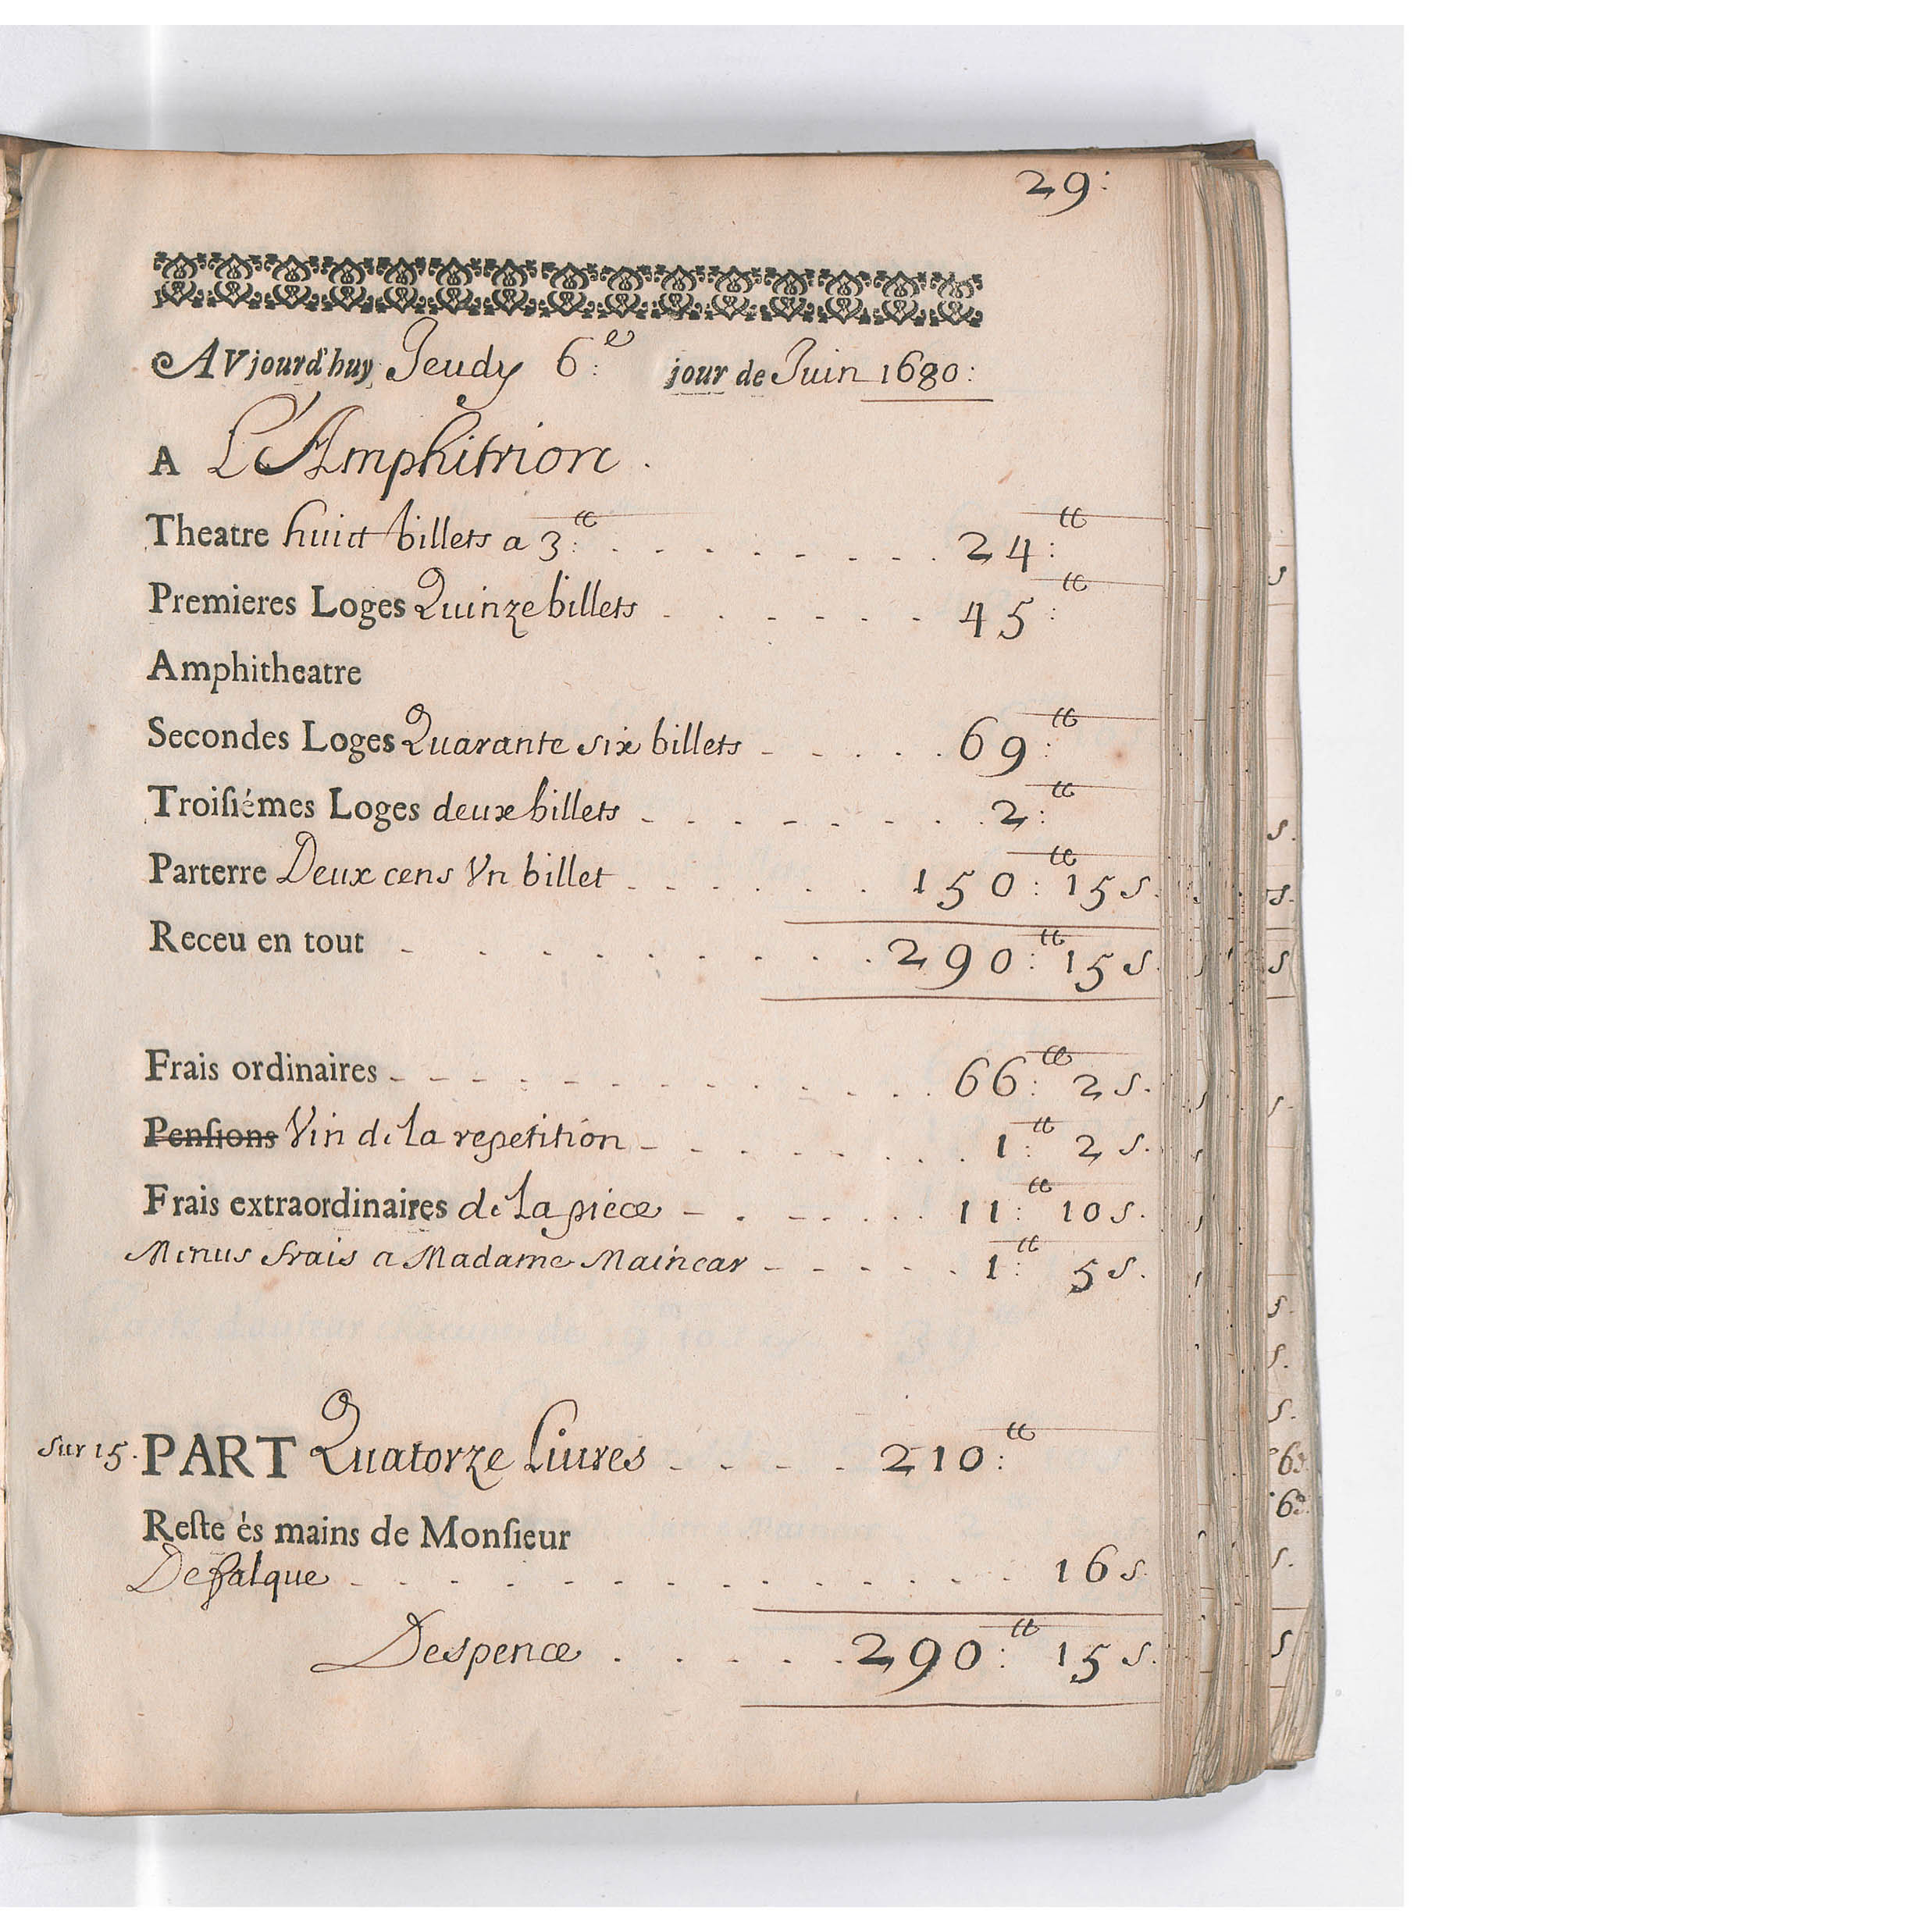 29:
AVjourd'huy Jeudy 6:e jour de Juin 1680:
A L'Amphitrion.
Theatre huict billets a 3:tt . . . . . . . . 24:tt
Premieres Loges Quinze billets . . . . . . 45:tt
Amphitheatre
Secondes Loges Quarante six billets . . . . . 69:tt
Troisiémes Loges deux billets . . . . . . . . 2:tt
Parterre Deux cens Vn billet . . . . . . 150:tt 15 s.
Receu en tout . . . . . . . . . . 290:tt 15 s.
Frais ordinaires . . . . . . . . . . . . . 66:tt 2 s.
Pensions Vin de la repetition . . . . . . . . 1:tt 2 s.
Frais extraordinaires de la piéce . . . . . . . 11:tt 10 s.
Menus frais a Madame Maincar . . . . . . 1:tt 5 s.
Sur 15. PART Quatorze Liures . . . . 210:tt
Reste és mains de Monsieur
Defalque . . . . . . . . . . . . . 16 s
Despence . . . . . . 290:tt 15 s.